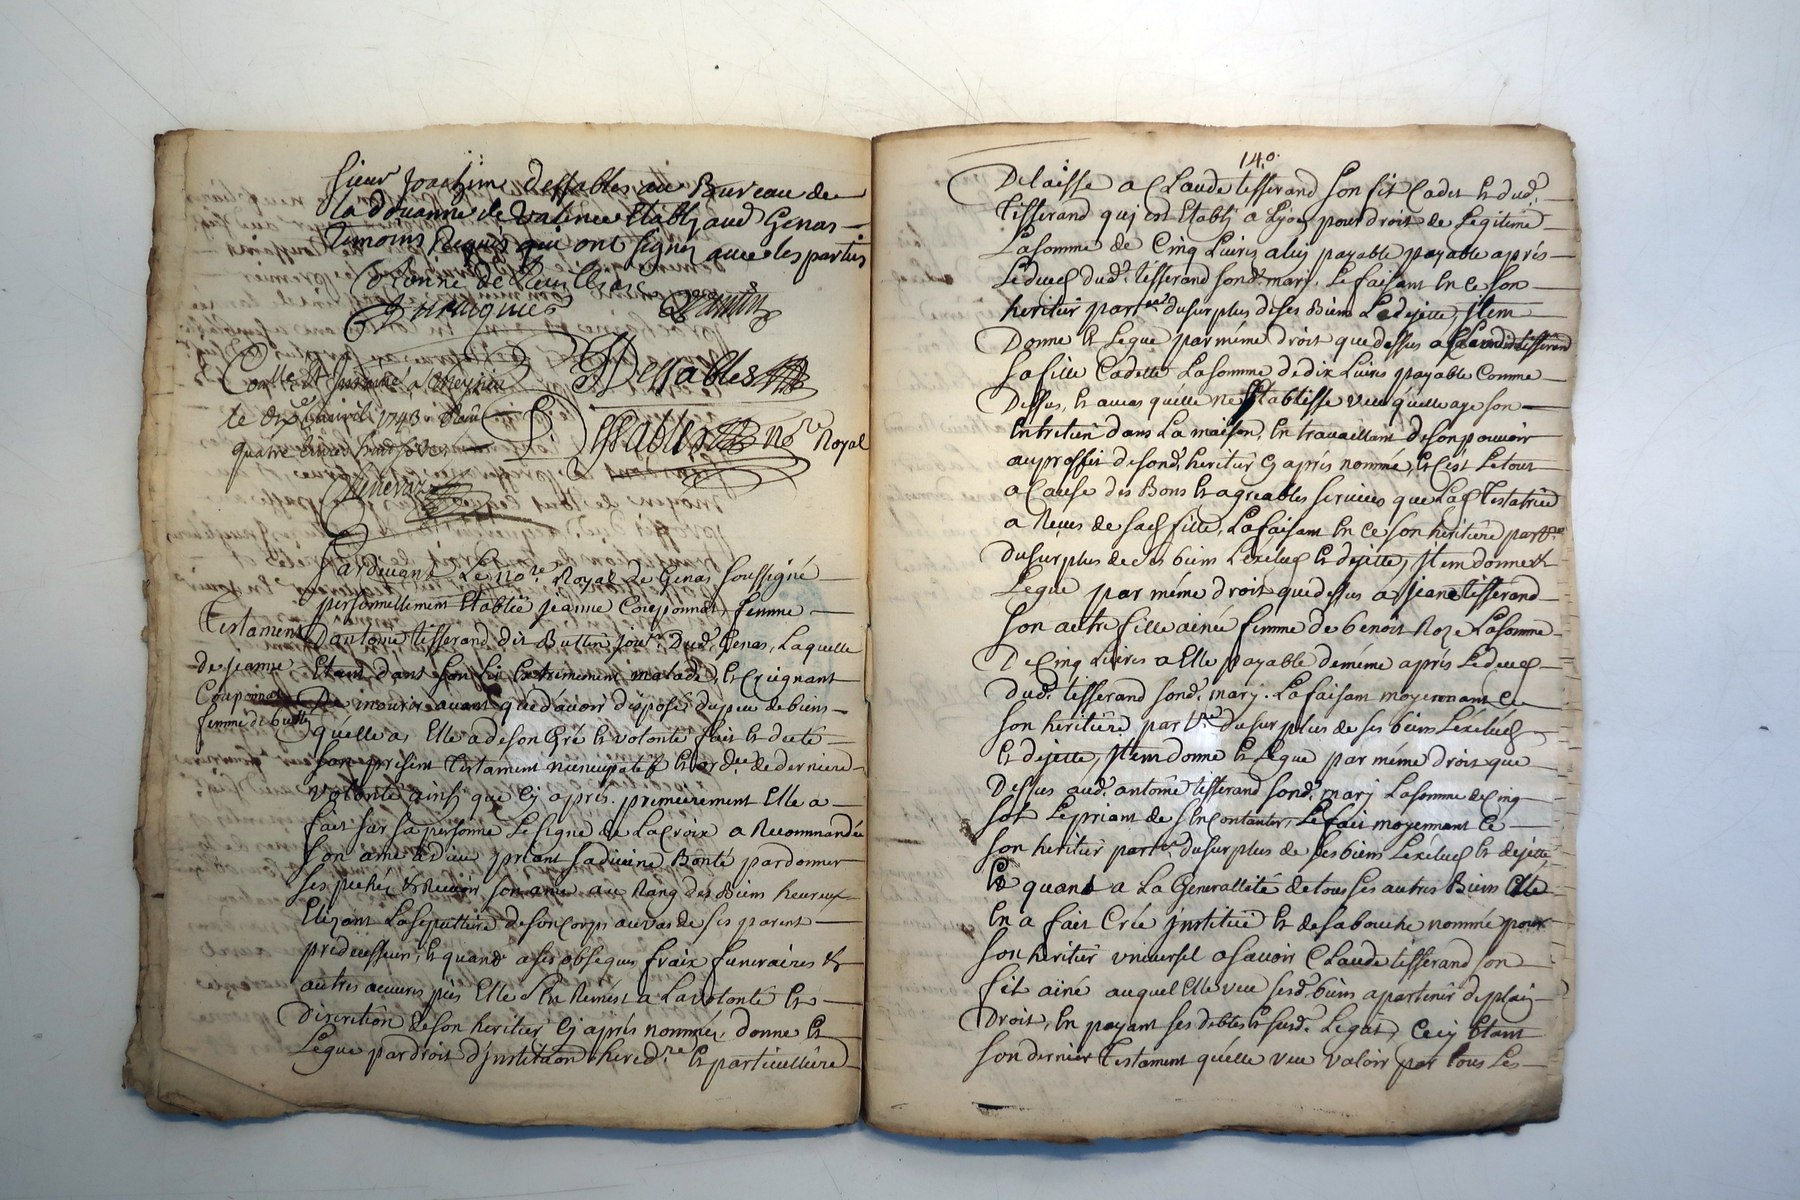 sieur Joachim Dessables au Bureau de
la doüanne de valence Etablj aud Genas
temoins Requis qui ont signés avec les parties
Dessables
Dessables No.re Royal
le 1743
quatre livres
Testament
de jeanne
Couponnat
femme de
Pardevant Le no.re Royal de Genas soussigné
personnellement Establie jeanne Couponnat femme
Dantoine tisserand dit Buttin jour.r Dud. Genas, Laquelle
Etant dans son lit Extremement malade, Et Creignant
De mourir avant que d'avoir disposé du peu de biens
qu'elle as Elle a de son Gré Et volonté fait Et dicté
son present testament nuncupatif Et ord.re de derniere
volonté ainsj que Cj aprés. premierement Elle a
fait sur sa personne Le signe de La Croix a Recommandée
son ame a dieu priant sa divine Bonté pardonner
ses pechés & Recevoir son ame au Rang des Bien heureux
Elizant La sepulture de son Corps au vas de ses parent
predecesseurs, Et quand a ses obseques fraix funeraires &
autres oeuvres pies Elle s'En Remést a La volonté Et
discretion de son heritier Cj aprés nommé, donne Et
Legue par droit d'jnstitution hered.re Et particulliere
140.
Delaisse a Claude tisserand son fit Cadet Et dud.
Tisserand quj est Etablj a Lyon pour droit de Legitime
La somme de Cinq Livres a luj payable payable aprés
Le deces dud. tisserand sond. marj, Le faisant En ce son
heritier part.er du surplus de ses Biens Le dejette, jtem
Donne Et Legue par méme droit que dessus a Claudine tisserand
sa fille Cadette La somme de dix Livres payable Comme
Dessus, Et avant qu'elle ne s'Etablisse veu qu'elle aye son
Entretien dans La maison, En travaillant de son pouvoir
au proffit de sond. heritier Cj aprés nommé, Et C'est Le tout
a Cause des Bons Et agreables services que Lad Testatrice
a Receus de sad fille, La faisant En ce son heritiere part.re
du surplus de ses biens L'exclud Et dejette, jtem donne &
Legue par méme droit que dessus a jeane tisserand
son autre fille ainée femme de benoit Roze La somme
De Cinq Livres a Elle payable de méme aprés Le deces
dud. tisserand sond. marj. La faisant moyennant Ce
son heritiere part.re du surplus de ses biens L'exclud
Et dejette, jtem donne Et Legue par méme droit que
Dessus aud. antoine tisserand sond. marj La somme de Cinq
sols Le priant de s'En Contanter, Le fait moyennant Ce
son heritier part.r du surplus de ses biens L'exclud Et dejette
Et quant a La Generallité de tous ses autres Biens Elle
En a fait Crée jnstitué Et de sa bouche nommé pour
son heritier universel a savoir Claude tisserand son
fit ainé auquel Elle veu sesd. biens apartenir de plain
Droit, En payant ses debtes & susd. Legats, Cecj Etant
son dernier Testament qu'elle veu valoir par tous Les